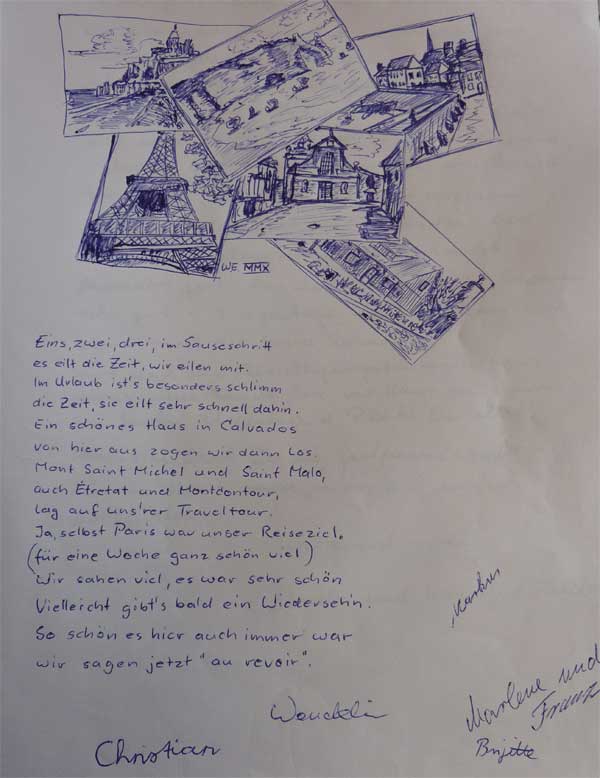 WE MMX
Eins, zwei, drei, im Sauseschritt
es eilt die Zeit, wir eilen mit.
Im Urlaub ist's besonders schlimm
die Zeit, sie eilt sehr schnell dahin.
Ein schönes Haus in Calvados
von hier aus zogen wir dann los.
Mont Saint Michel und Saint Malo,
auch Étretat und Montcontour,
lag auf uns'rer Traveltour.
Ja, selbst Paris war unser Reiseziel.
(für eine Woche ganz schön viel)
Wir sahen viel, es war sehr schön
Vielleicht gibt's bald ein Wiederseh'n.
So schön es hier auch immer war
wir sagen jetzt "au revoir".
Markus
Marlene und
Franz
Wendelin
Brijitte
Christian